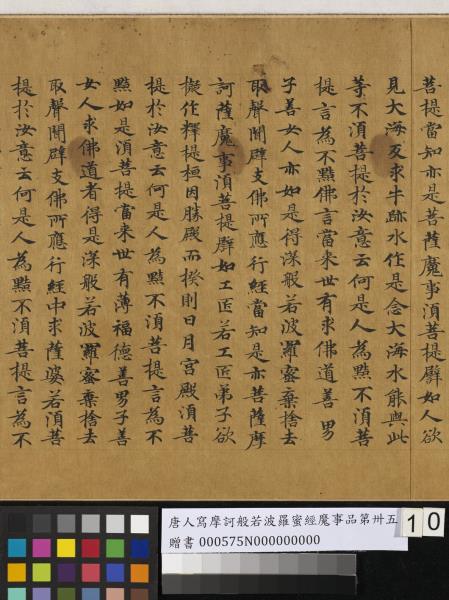 菩提當知亦是菩薩魔事須菩提譬如人欲
見大海反求牛跡水作是念大海水能與此
等不須菩提於汝意云何是人為黠不須菩
提言為不黠佛言當來世有求佛道善男
子善女人亦如是得深般若波羅蜜棄捨去
取聲聞辟支佛所應行經當知是亦菩薩摩
訶薩魔事須菩提譬如工匠若工匠弟子欲
擬作釋提桓因勝殿而揆則日月宮殿須菩
提於汝意云何是人為黠不須菩提言為不
黠如是須菩提當來世有薄福德善男子善
女人求佛道者得是深般若波羅蜜棄捨去
取聲聞辟支佛所應行經中求薩婆若須菩
提於汝意云何是人為黠不須菩提言為不
唐人寫摩訶般若波羅蜜經魔事品第卅五
贈書 000575N000000000
10